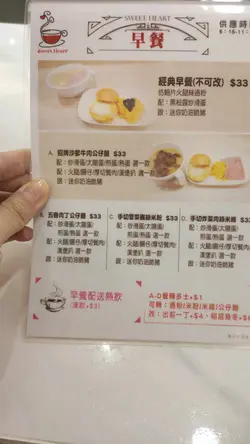 Sweet Heart
SWEET HEART
早餐
供應時
經典早餐(不可改) $33
配：黑松露炒滑蛋
跟：迷你奶油脆豬
A. 招牌沙嗲牛肉公仔麵 $33
配：炒滑蛋/太陽蛋/煎蛋/熱蛋 選一款
配：火腿/腸仔/厚切餐肉/漢堡扒 選一款
跟：迷你奶油脆豬
B. 五香肉丁公仔麵 $33
配：炒滑蛋/太陽蛋/
煎蛋/熱蛋 選一款
配：火腿/腸仔/厚切餐肉/
漢堡扒 選一款
跟：迷你奶油脆豬
C. 手切雪菜雞絲米粉 $33
配：炒滑蛋/太陽蛋/
煎蛋/熱蛋 選一款
配：火腿/腸仔/厚切餐肉/
漢堡扒 選一款
跟：迷你奶油脆豬
D. 手切炸菜肉絲米線 $33
配：炒滑蛋/太陽蛋/
煎蛋/熱蛋 選一款
配：火腿/腸仔/厚切餐肉/
漢堡扒 選一款
跟：迷你奶油脆豬
早餐配送熱飲
(凍飲+$3)
A-D餐轉多士+$1
可轉：通粉/米粉/米線/公仔麵
改：出前一丁+$4、稻庭烏冬+$